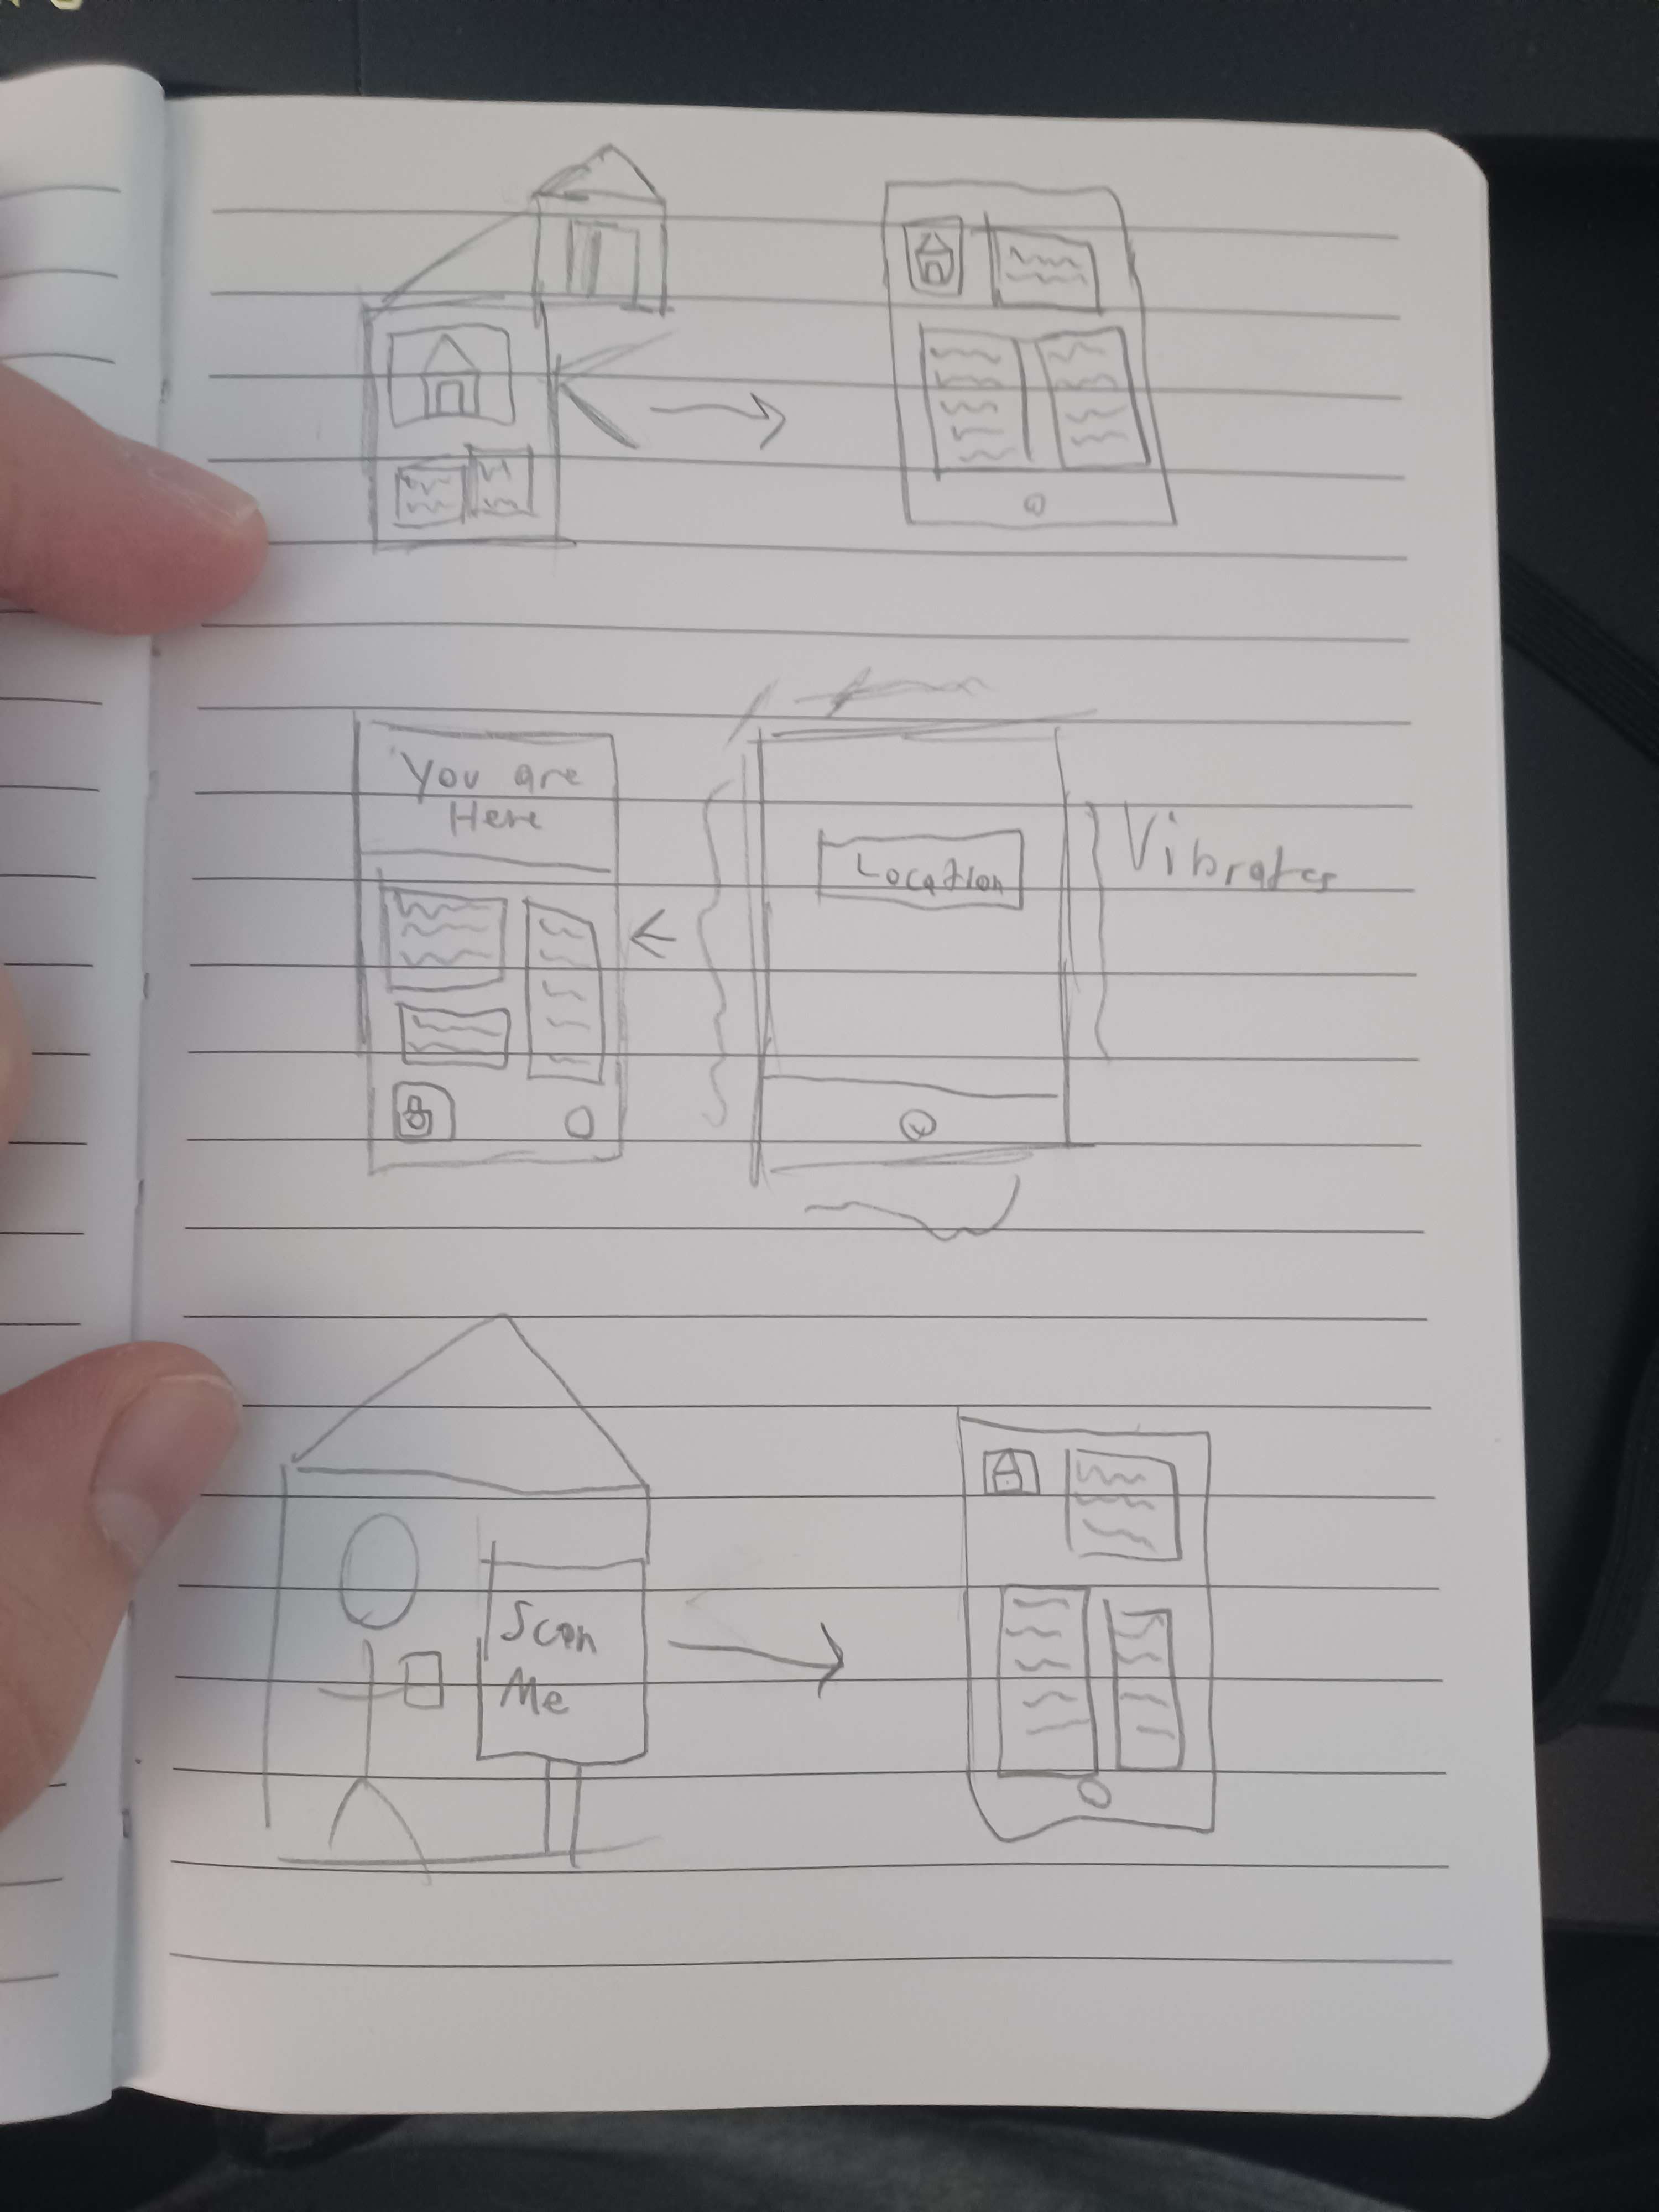 You are
Here
Location
Vibrates
Scan
Me